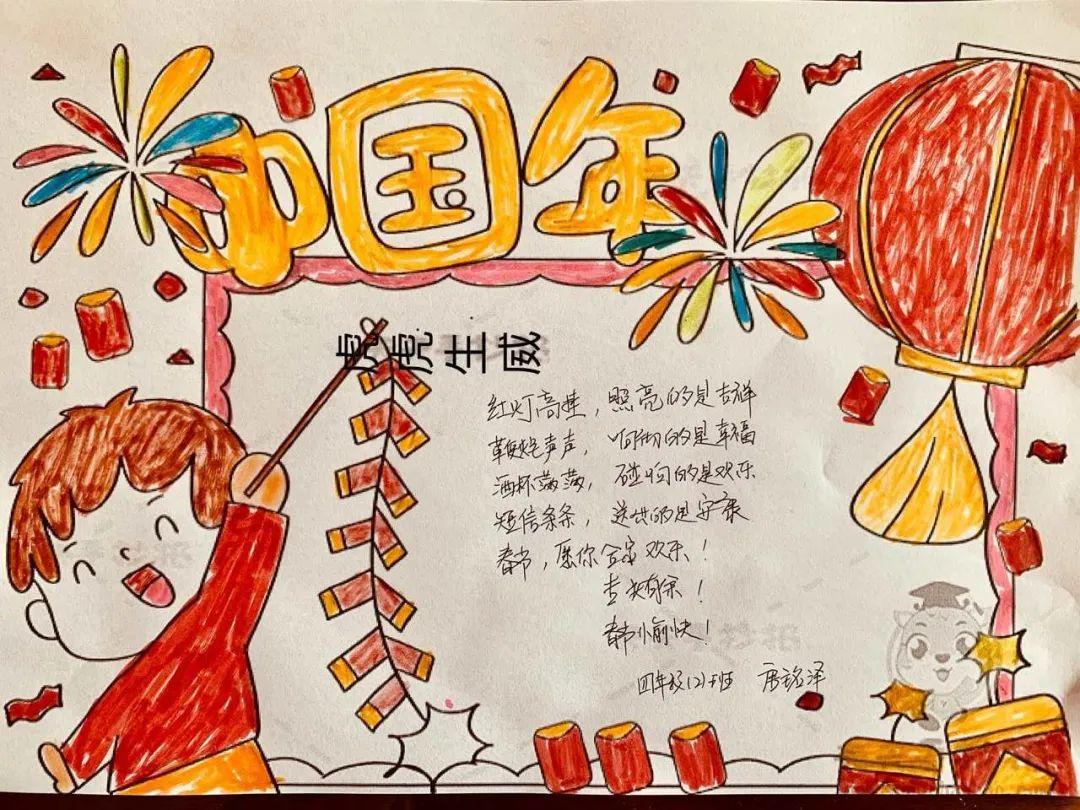 中国年
虎虎生威
红灯高挂，照亮的是吉祥
鞭炮声声，响彻的是幸福
酒杯满满，碰响的是欢乐
短信条条，送出的是安康
春节，愿你合家欢乐！
吉庆有余！
春节愉快！
四年级(2)班 唐铭泽